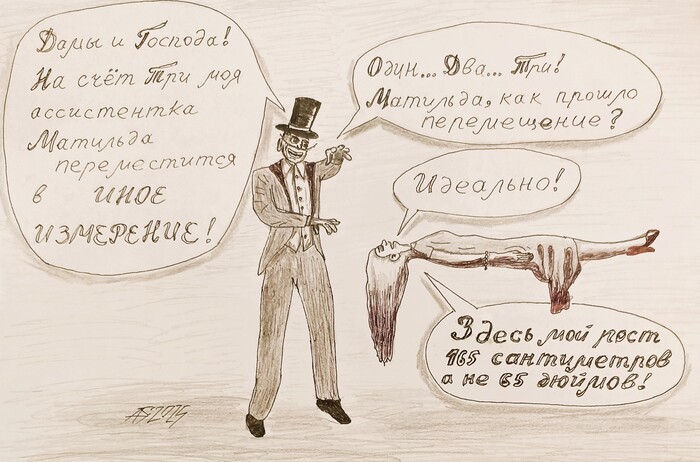 Дамы и Господа!
На счёт Три моя
ассистентка
Матильда
переместится
в ИНОЕ
ИЗМЕРЕНИЕ!
Один... Два... Три!
Матильда, как прошло
перемещение?
Идеально!
Здесь мой рост
165 сантиметров
а не 65 дюймов!